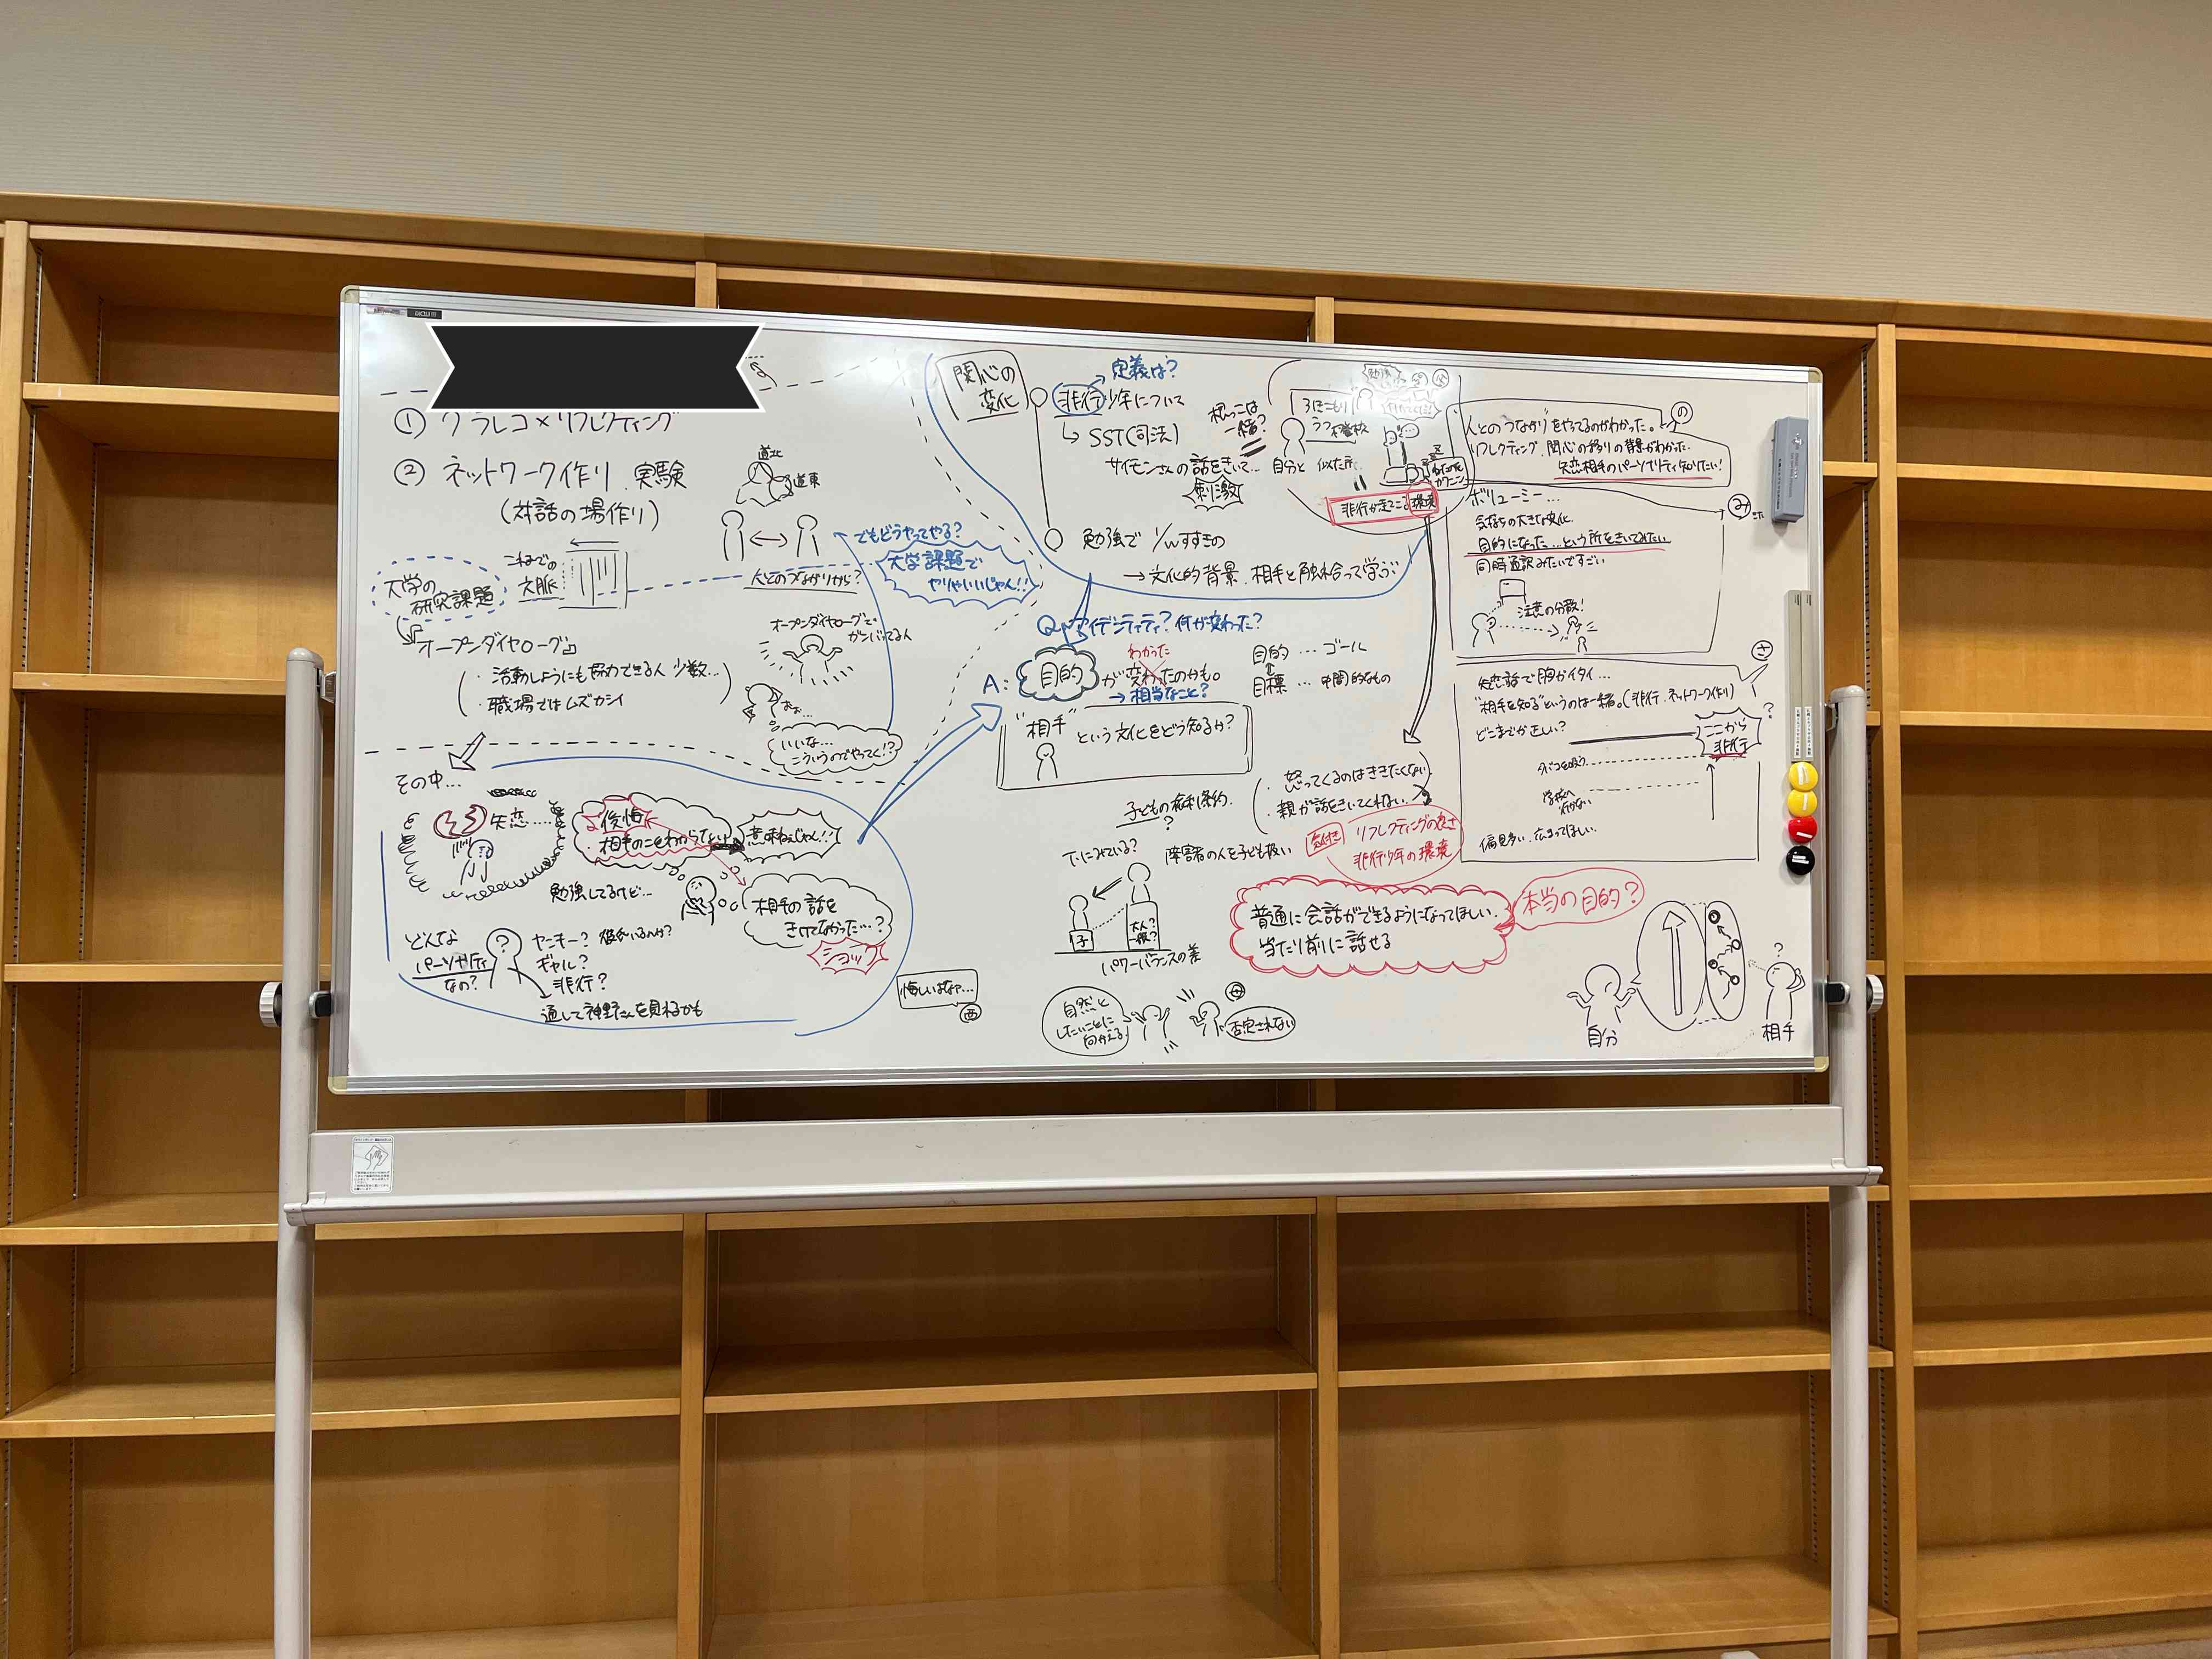 ① グラレコ×リフレクティング
② ネットワーク作り 実験
(対話の場作り)
道北
道東
大学の
研究課題
これまでの
文脈
人とのつながりから?
でもどうやってやる?
大学課題で
やりゃいいじゃん!!
オープンダイヤローグ
・活動しようにも協力できる人 少数…
・職場ではムズカシイ
オープンダイヤローグで
ガンバってる人
おぉ…
いいな…
こういうのでやってく!?
その中…
失恋……
後悔
・相手のことをわからてない
意味ねぇじゃん!!
勉強してるけど…
相手の話を
きけてなかった…?
ショック
どんな
パーソナリティ
なの?
?
ヤンキー?
ギャル?
非行?
悔しいはなァ…
西
関心の
変化
定義は?
非行少年について
↳ SST(司法)
サイモンさんの話をきいて…
刺激
根っこは
一緒?
自分と 似た所
ひきこもり
不登校
環境
勉強で
すすきの
→文化的背景 相手と触れ合って学ぶ
Q アイデンティティ?何が変わった?
A: 目的が変わったのかも。
わかった
→相当なこと?
目的 … ゴール
目標 … 中間的なもの
"相手"という文化をどう知るか?
・怒ってくるのはききたくない
・親が話をきいてくれない
子どもの権利条約
?
気付き
リフレクティングの良さ
非行少年の環境
下にみている?
障害者の人を子ども扱い
子
大人?
一般?
パワーバランスの差
普通に会話ができるようになってほしい
当たり前に話せる
本当の目的?
自然と
したいことに
向かえる
否定されない
自分
相手
?
人とのつながりをやってるのがわかった。
リフレクティング、関心の移りの背景がわかった
失恋相手のパーソナリティ知りたい!
の
ボリューミー…
気持ちの大きな変化
目的になった…という所をきいてみたい
同時通訳みたいですごい
注意の分散!
み
さ
失恋話で胸がイタイ…
"相手を知る"というのは一緒。(非行、ネットワーク作り)
どこまでが正しい?
ここから
非行
?
タバコを吸う
学校へ
行かない
偏見多い、広まってほしい